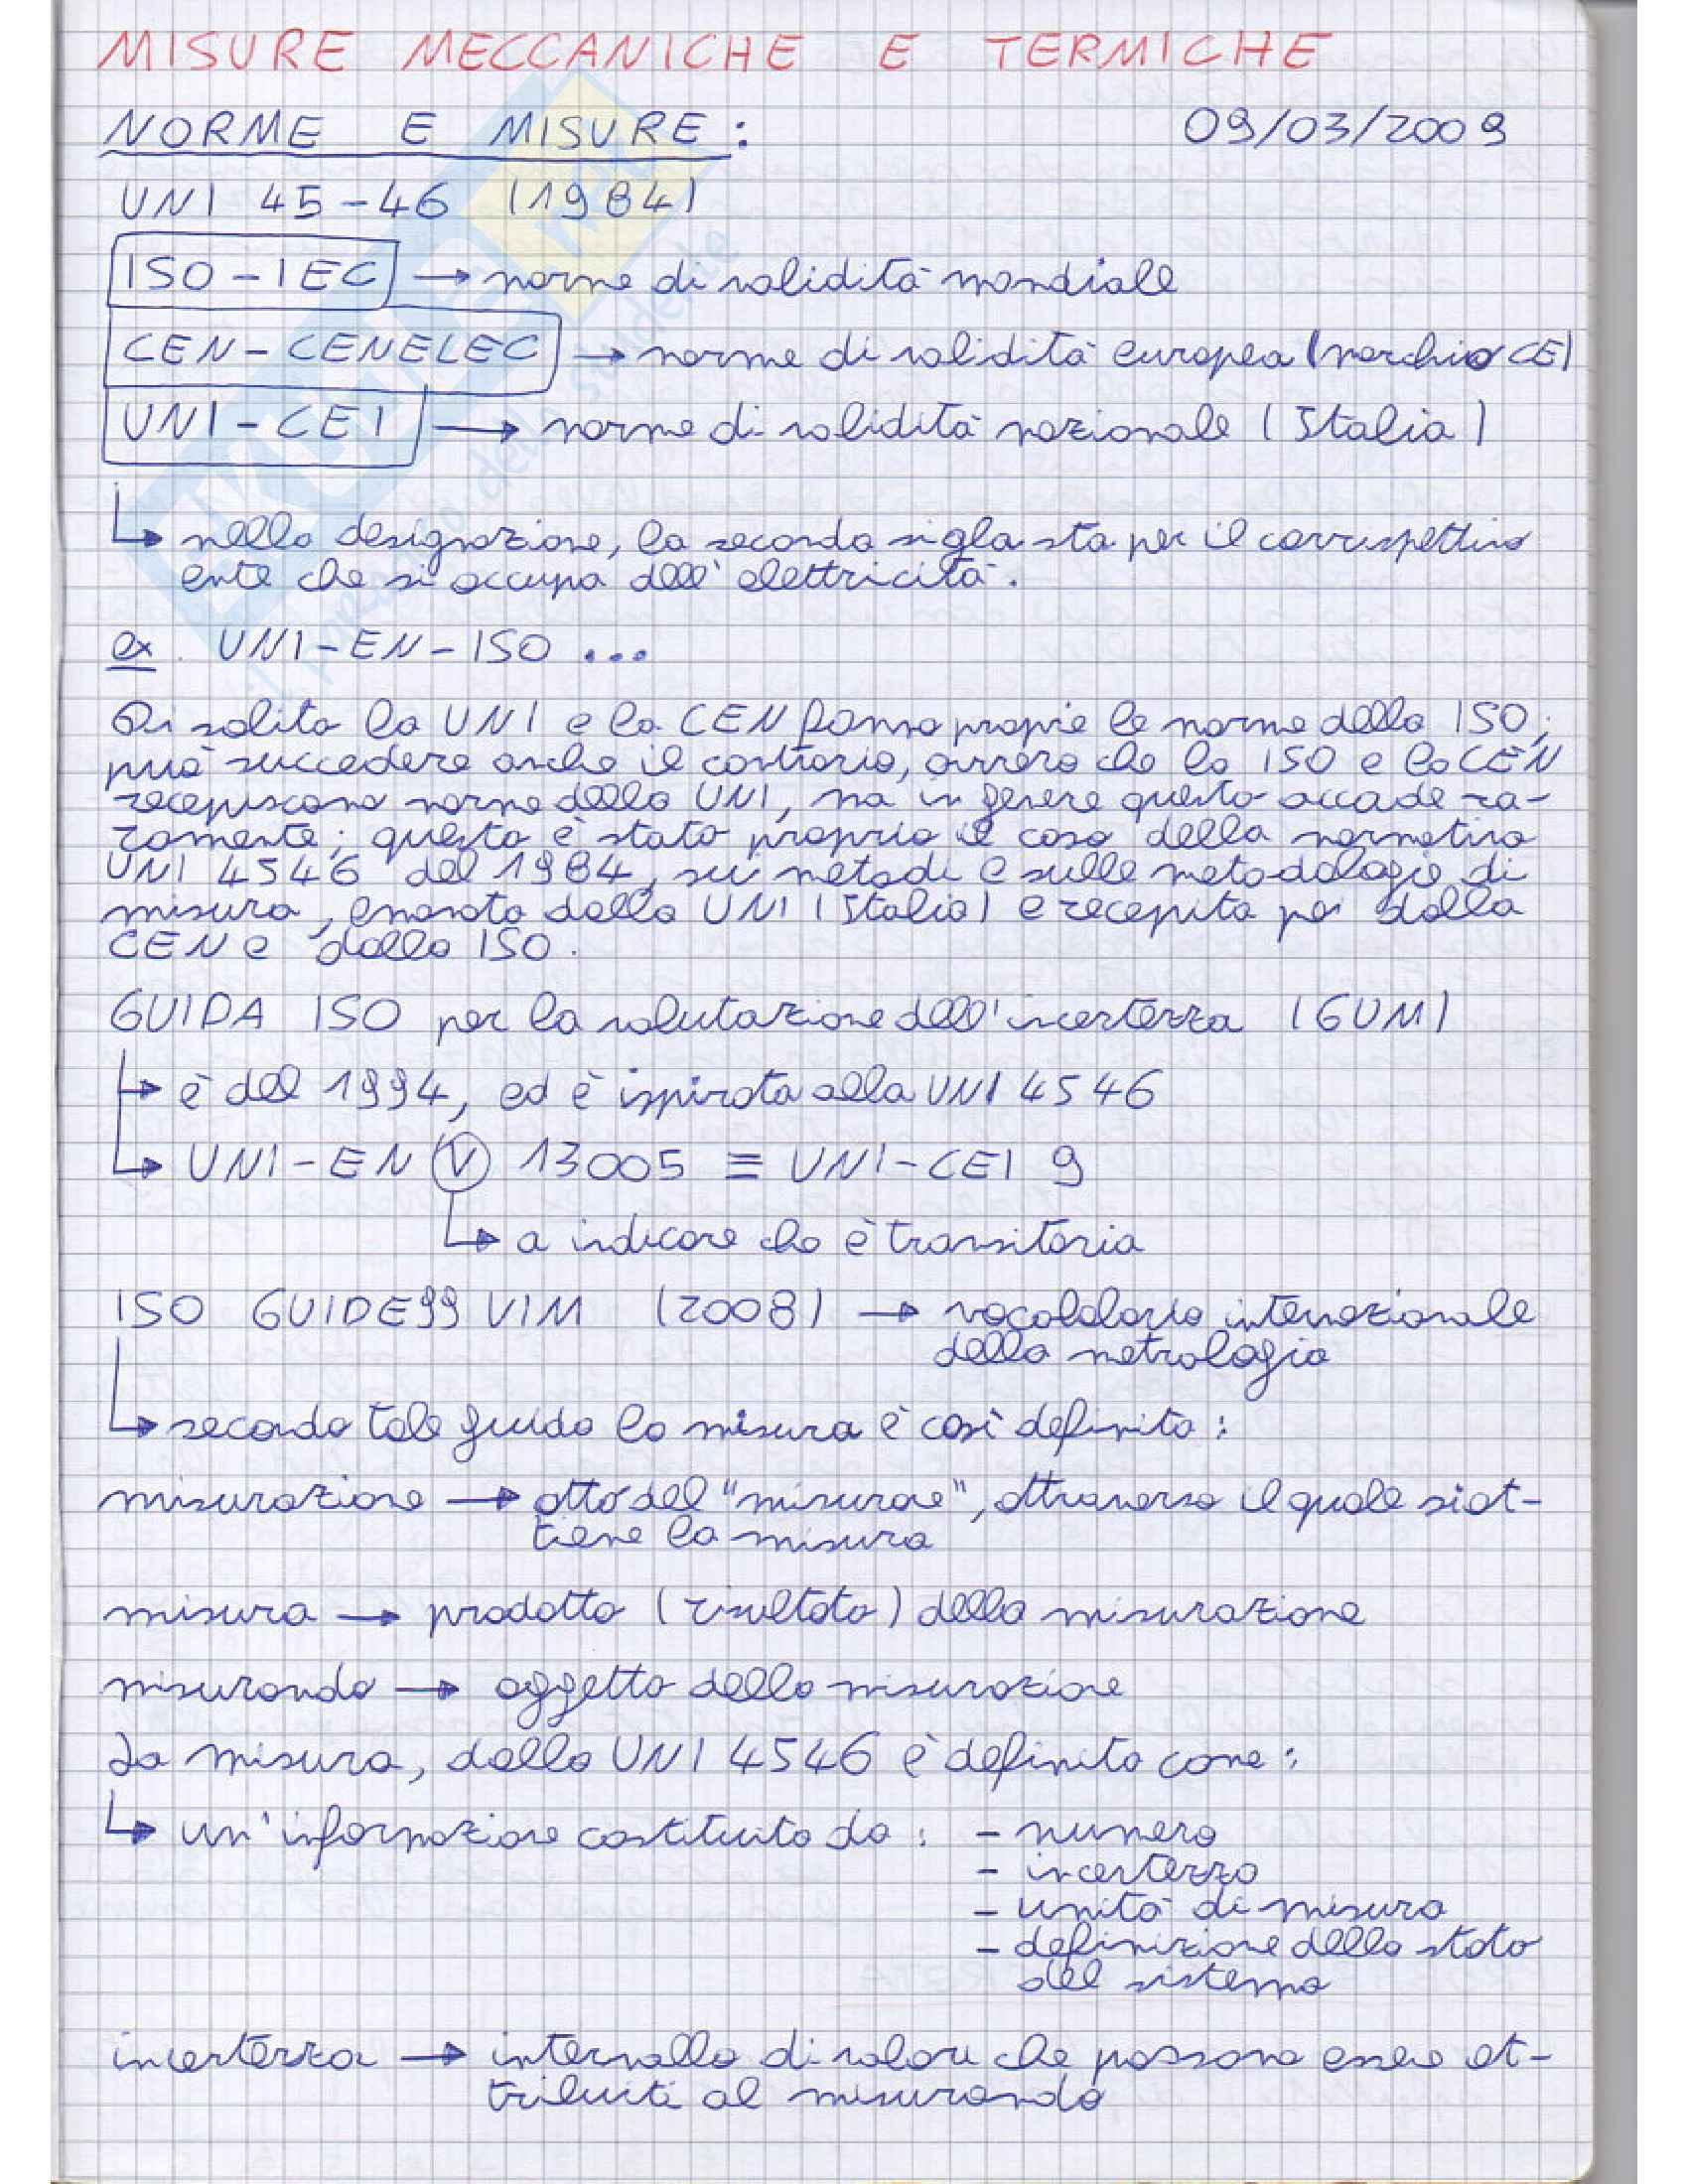 MISURE MECCANICHE E TERMICHE
NORME E MISURE: 09/03/2009
UNI 45-46 (1984)
ISO-IEC → norme di validità mondiale
CEN-CENELEC → norme di validità europea (marchio CE)
UNI-CEI → norme di validità nazionale (Italia)
↳ nella designazione, la seconda sigla sta per il corrispettivo
ente che si occupa dell'elettricità.
ex. UNI-EN-ISO ...
Di solito la UNI e la CEN fanno proprie le norme della ISO;
può succedere anche il contrario, ovvero che la ISO e la CEN
recepiscano norme della UNI, ma in genere questo accade ra-
ramente; questo è stato proprio il caso della normativa
UNI 4546 del 1984, sui metodi e sulle metodologie di
misura, emanata dalla UNI (Italia) e recepita poi dalla
CEN e dalla ISO.
GUIDA ISO per la valutazione dell'incertezza (GUM)
↳ è del 1994, ed è ispirata alla UNI 4546
↳ UNI-EN V 13005 ≡ UNI-CEI 9
↳ a indicare che è transitoria
ISO GUIDE99 VIM (2008) → vocabolario internazionale
della metrologia
↳ secondo tale guida la misura è così definita:
misurazione → atto del "misurare", attraverso il quale si ot-
tiene la misura
misura → prodotto (risultato) della misurazione
misurando → oggetto della misurazione
La misura, dalla UNI 4546 è definita come:
↳ un'informazione costituita da: - numero
- incertezza
- unità di misura
- definizione dello stato
del sistema
incertezza → intervallo di valori che possono essere at-
tribuiti al misurando